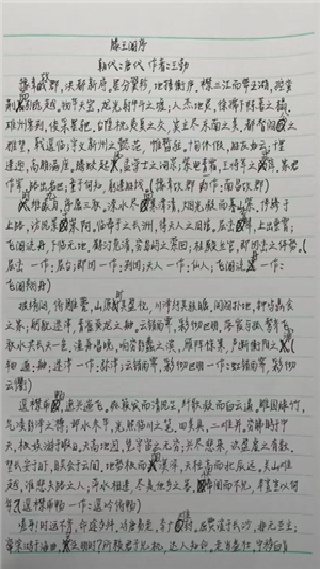 滕王阁序
朝代:唐代 作者:王勃
豫章故郡,洪都新府。星分翼轸,地接衡庐。襟三江而带五湖,控蛮
荆而引瓯越。物华天宝,龙光射牛斗之墟;人杰地灵,徐孺下陈蕃之榻。
雄州雾列,俊采星驰。台隍枕夷夏之交,宾主尽东南之美。都督阎公之
雅望,棨戟遥临;宇文新州之懿范,襜帷暂驻。十旬休假,胜友如云;千里
逢迎,高朋满座。腾蛟起凤,孟学士之词宗;紫电青霜,王将军之武库。家君
作宰,路出名区;童子何知,躬逢胜饯。(豫章故郡 一作:南昌故郡)
时维九月,序属三秋。潦水尽而寒潭清,烟光凝而暮山紫。俨骖騑于
上路,访风景于崇阿。临帝子之长洲,得天人之旧馆。层峦耸翠,上出重霄;
飞阁流丹,下临无地。鹤汀凫渚,穷岛屿之萦回;桂殿兰宫,即冈峦之体势。(
层峦 一作:层台;即冈 一作:列冈;天人 一作:仙人;飞阁流丹 一作:
飞阁翔丹)
披绣闼,俯雕甍,山原旷其盈视,川泽纡其骇瞩。闾阎扑地,钟鸣鼎食
之家;舸舰迷津,青雀黄龙之舳。云销雨霁,彩彻区明。落霞与孤鹜齐飞,
秋水共长天一色。渔舟唱晚,响穷彭蠡之滨,雁阵惊寒,声断衡阳之浦。(
轴 通:舳;迷津 一作:弥津;云销雨霁,彩彻区明 一作:虹销雨霁,彩彻
云衢)
遥襟甫畅,逸兴遄飞。爽籁发而清风生,纤歌凝而白云遏。睢园绿竹,
气凌彭泽之樽;邺水朱华,光照临川之笔。四美具,二难并。穷睇眄于中
天,极娱游于暇日。天高地迥,觉宇宙之无穷;兴尽悲来,识盈虚之有数。
望长安于日下,目吴会于云间。地势极而南溟深,天柱高而北辰远。关山难
越,谁悲失路之人;萍水相逢,尽是他乡之客。怀帝阍而不见,奉宣室以何
年?(遥襟甫畅 一作:遥吟俯畅)
嗟乎!时运不齐,命途多舛。冯唐易老,李广难封。屈贾谊于长沙,非无圣主;
窜梁鸿于海曲,岂乏明时?所赖君子见机,达人知命。老当益壮,宁移白首